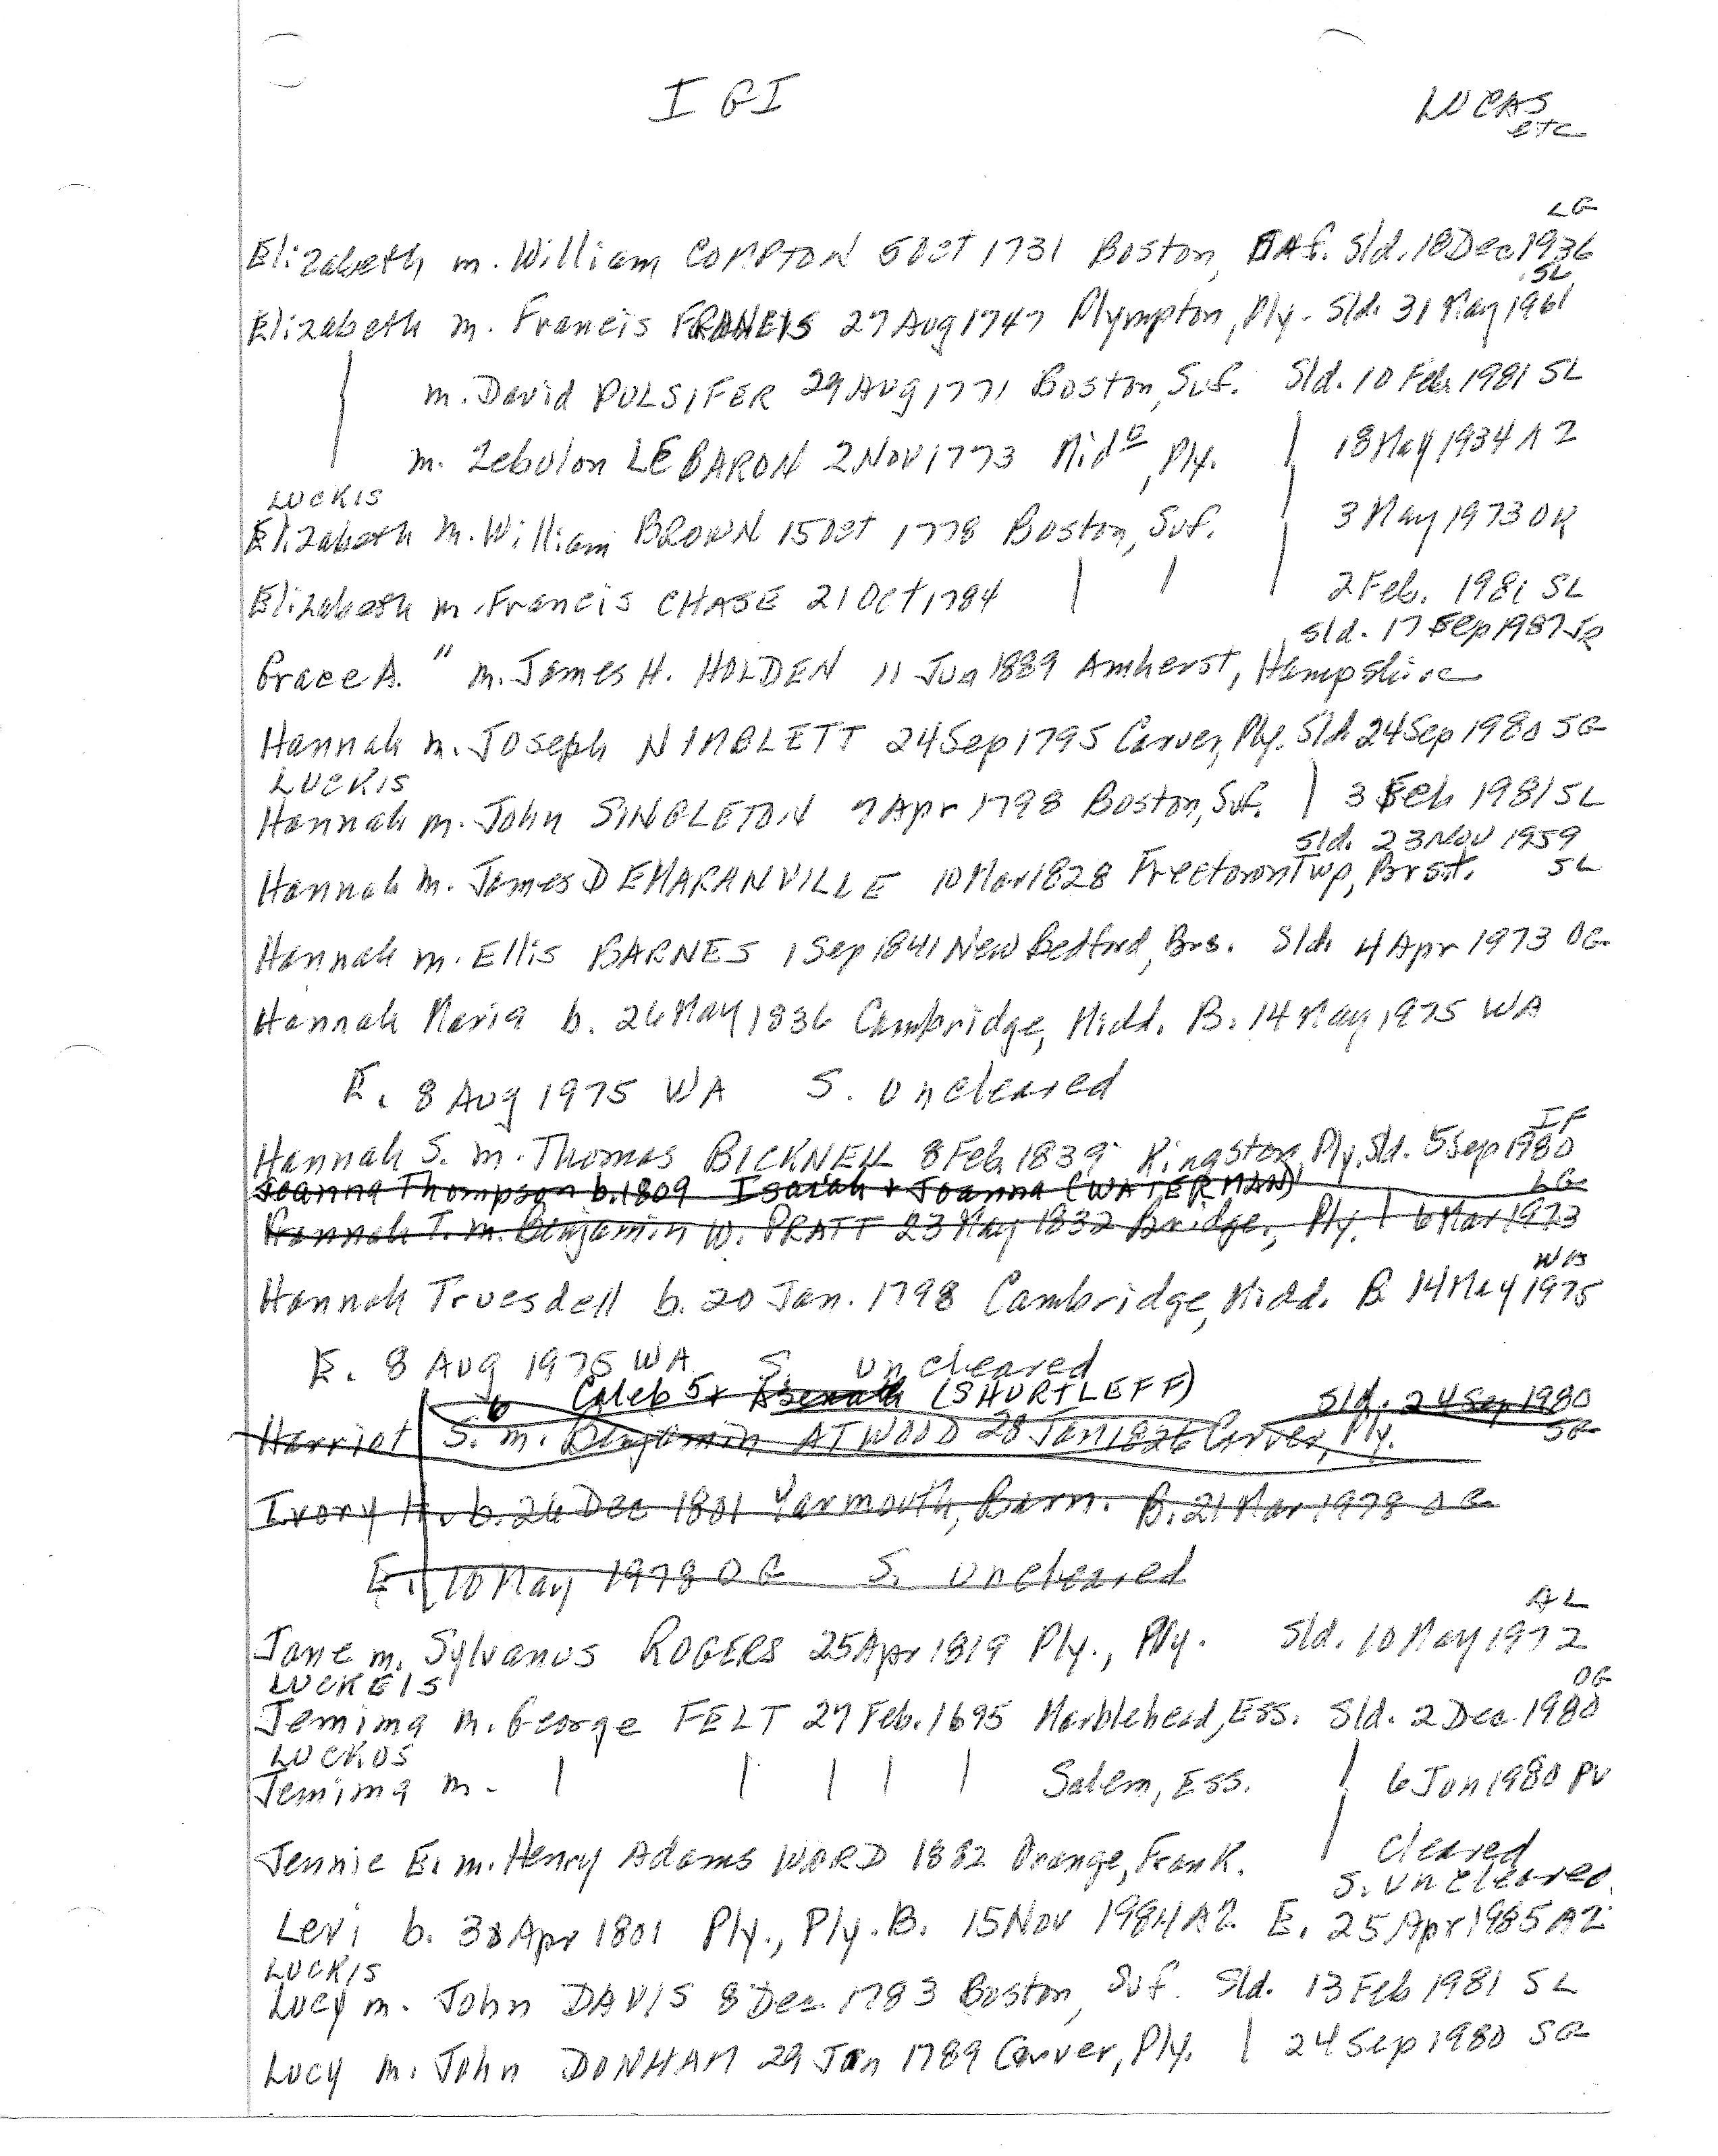 I G I
LUCAS
etc
LG
Elizabeth m. William COMPTON 5 OCT 1731 Boston, Sld. 18 Dec 1936
SL
Elizabeth m. Francis FRANCIS 27 Aug 1747 Plympton, Ply. Sld. 31 May 1961
| m. David PULSIFER 29 AUG 1771 Boston, Suf. Sld. 10 Feb. 1981 SL
m. Zebulon LE BARON 2 NOV 1773 Mid.o, Ply. | 18 May 1934 AZ
LUCKIS
Elizabeth m. William BROWN 15 Oct 1778 Boston, Suf. | 3 May 1973 OK
Elizabeth m. Francis CHASE 21 Oct 1784 | | | 2 Feb. 1981 SL
Sld. 17 Sep 1987 JR
Grace A. " m. James H. HOLDEN 11 Jun 1889 Amherst, Hampshire
Hannah m. Joseph NIMBLETT 24 Sep 1795 Carver, Ply. Sld. 24 Sep 1980 SG
LUCKIS
Hannah m. John SINGLETON 7 Apr 1798 Boston, Suf. | 3 Feb 1981 SL
Sld. 23 NOV 1959
Hannah m. James DEMARANVILLE 10 Mar 1828 Freetown Twp, Brst. SL
Hannah m. Ellis BARNES 1 Sep 1841 New Bedford, Brs. Sld. 4 Apr 1973 OG
Hannah Maria b. 26 May 1836 Cambridge, Midd. B. 14 May 1975 WA
E. 8 Aug 1975 WA S. uncleared
IF
Hannah S. m. Thomas BICKNELL 8 Feb. 1839 Kingston, Ply. Sld. 5 Sep 1980
Joanna Thompson b. 1809 Isaiah + Joanna (WATERMAN) LG
Hannah T. m. Benjamin W. PRATT 23 May 1832 Bridge., Ply. | 6 Mar 1973
WA
Hannah Truesdell b. 20 Jan. 1798 Cambridge, Midd. B. 14 May 1975
E. 8 AUG 1975 WA S. uncleared
Caleb 5 + Asenath (SHURTLEFF) Sld. 24 Sep 1980
Harriot S. m. Benjamin ATWOOD 28 Jan 1826 Carver, Ply. SG
Ivory H. b. 26 Dec 1801 Yarmouth, Barn. B. 21 Mar 1978 OG
E. 10 May 1978 OG S. uncleared
AL
Jane m. Sylvanus ROGERS 25 Apr 1819 Ply., Ply. Sld. 10 May 1972
LUCKEIS OG
Jemima m. George FELT 27 Feb. 1695 Marblehead, Ess. Sld. 2 Dec 1980
LUCKOS
Jemima m. | | | | | Salem, Ess. | 6 Jun 1980 PV
Jennie E. m. Henry Adams WARD 1882 Orange, Frank. | cleared
S. uncleared
Levi b. 30 Apr 1801 Ply., Ply. B. 15 Nov 1984 AZ E. 25 Apr 1985 AZ
LUCKIS
Lucy m. John DAVIS 8 Dec 1783 Boston, Suf. Sld. 13 Feb 1981 SL
Lucy m. John DONHAM 29 Jan 1789 Carver, Ply. | 24 Sep 1980 SG